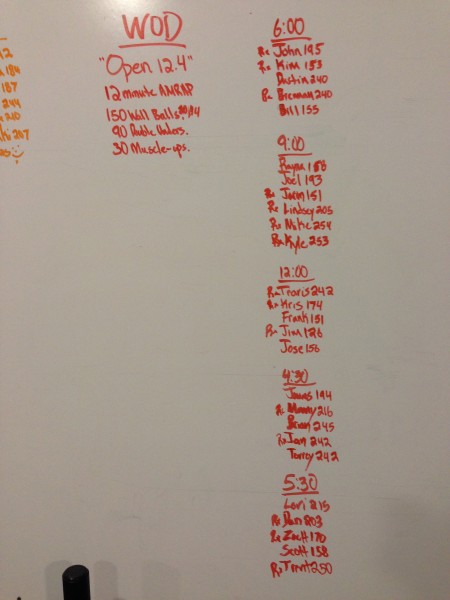 12
184
187
244
240
247
WOD
"Open 12.4"
12 minute AMRAP
150 Wall Balls 20/14
90 Double Unders.
30 Muscle-ups.
6:00
Rx John 195
Rx Kim 153
Dustin 240
Rx Brennan 240
Bill 155
9:00
Rayna 158
Joel 193
Rx 151
Rx Lindsey 205
Rx Mike 254
Rx Kyle 253
12:00
Rx Travis 242
Rx Kris 174
Frank 151
Rx Jim 126
Jose 156
4:30
James 194
Rx Manny 216
Brian 245
Rx Ian 242
Torrey 242
5:30
Lori 215
Rx Dan 203
Rx Zach 170
Scott 158
Rx Trent 250